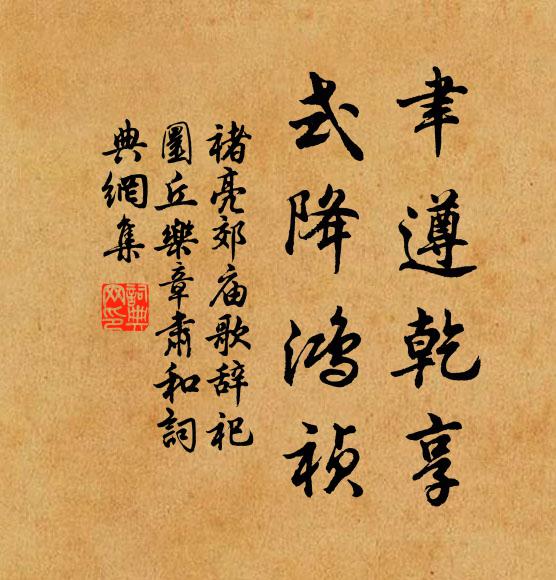 聿遵乾享
式降鴻禎
褚亮郊庙歌辞祀
圜丘樂章肅和詞
典網集
詞典网印